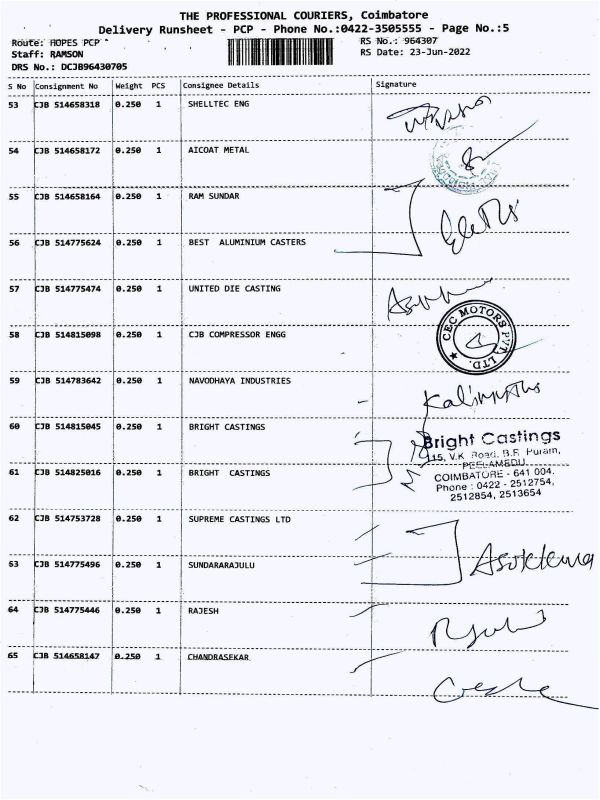 THE PROFESSIONAL COURIERS, Coimbatore
Delivery Runsheet - PCP - Phone No.:0422-3505555 - Page No.:5
Route: HOPES PCP RS No.: 964307
Staff: RAMSON RS Date: 23-Jun-2022
DRS No.: DCJB96430705
S No Consignment No Weight PCS Consignee Details Signature
53 CJB 514658318 0.250 1 SHELLTEC ENG
54 CJB 514658172 0.250 1 AICOAT METAL
55 CJB 514658164 0.250 1 RAM SUNDAR
56 CJB 514775624 0.250 1 BEST ALUMINIUM CASTERS
57 CJB 514775474 0.250 1 UNITED DIE CASTING
58 CJB 514815098 0.250 1 CJB COMPRESSOR ENGG
CEC MOTORS PVT. LTD.
59 CJB 514783642 0.250 1 NAVODHAYA INDUSTRIES
60 CJB 514815045 0.250 1 BRIGHT CASTINGS
Bright Castings
115, V.K. Road, B.R. Puram,
PEELAMEDU,
61 CJB 514825016 0.250 1 BRIGHT CASTINGS
COIMBATORE - 641 004.
Phone : 0422 - 2512754,
2512854, 2513654
62 CJB 514753728 0.250 1 SUPREME CASTINGS LTD
63 CJB 514775496 0.250 1 SUNDARARAJULU
64 CJB 514775446 0.250 1 RAJESH
65 CJB 514658147 0.250 1 CHANDRASEKAR